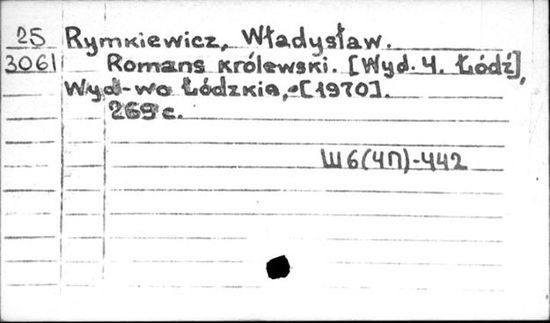 25 Rymkiewicz, Władysław.
3061 Romans królewski. [Wyd. 4. Łódź],
Wyd-wo Łódzkie, [1970].
269 с.
Ш6(4П)-442